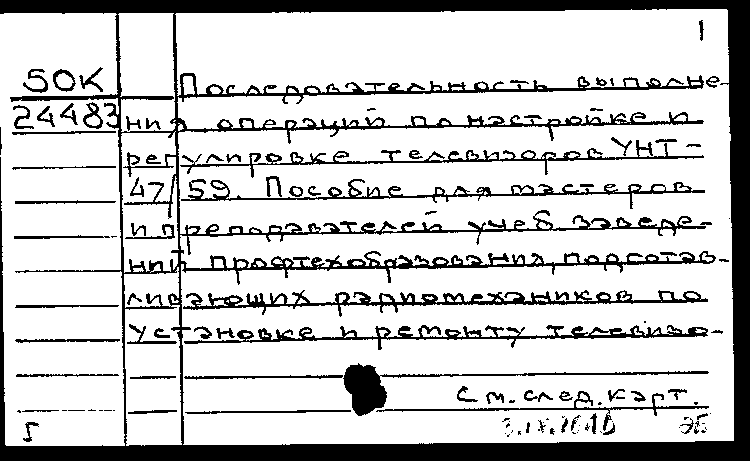 1
50К
24483
Последовательность выполне-
ния операций по настройке и
регулировке телевизоров УНТ-
47/59. Пособие для мастеров
и преподавателей учеб заведе-
ний профтехобразования, подготав-
ливающих радиомехаников по
установке и ремонту телевизо-
См. след. карт.